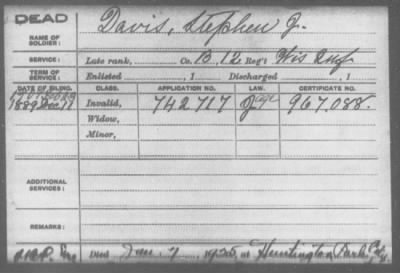 DEAD
NAME OF SOLDIER: Davis, Stephen J.
SERVICE: Late rank, Co. B, 12 Reg't Wis Inf
TERM OF SERVICE: Enlisted , 1 Discharged , 1
DATE OF FILING. CLASS. APPLICATION NO. LAW. CERTIFICATE NO.
1889 Dec 11 Invalid, 742717 967,088.
Widow,
Minor,
ADDITIONAL SERVICES:
REMARKS:
Died Jan. 7 1925, at Huntington Park,